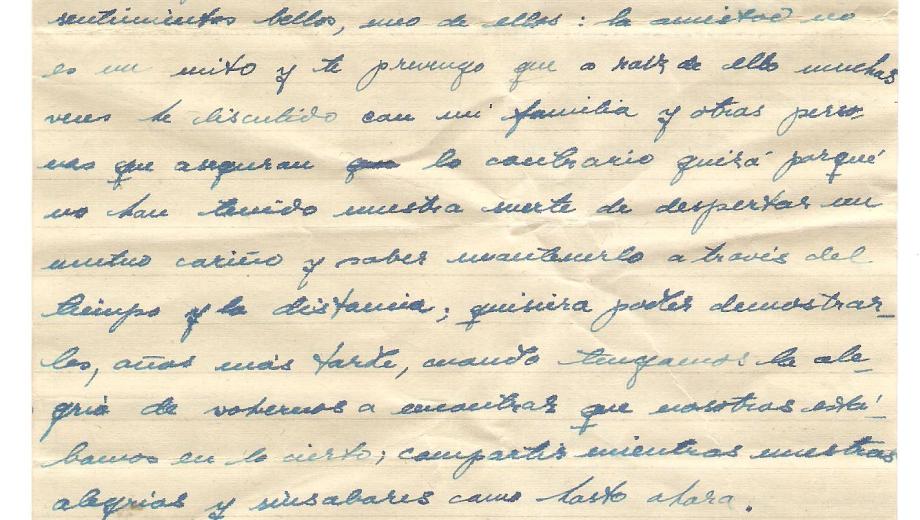 sentimientos bellos, uno de ellos: la amistad no
es un mito y te prevengo que a raíz de ello muchas
veces he discutido con mi familia y otras perso
nas que aseguran que lo contrario quizá porqué
no han tenido nuestra suerte de despertar un
mutuo cariño y saber mantenerlo a través del
tiempo y la distancia; quisiera poder demostrar_
les, años más tarde, cuando tengamos la ale_
gría de volvernos a encontrar que nosotros está_
bamos en lo cierto; compartir mientras nuestras
alegrías y sinsabores como hasta ahora.